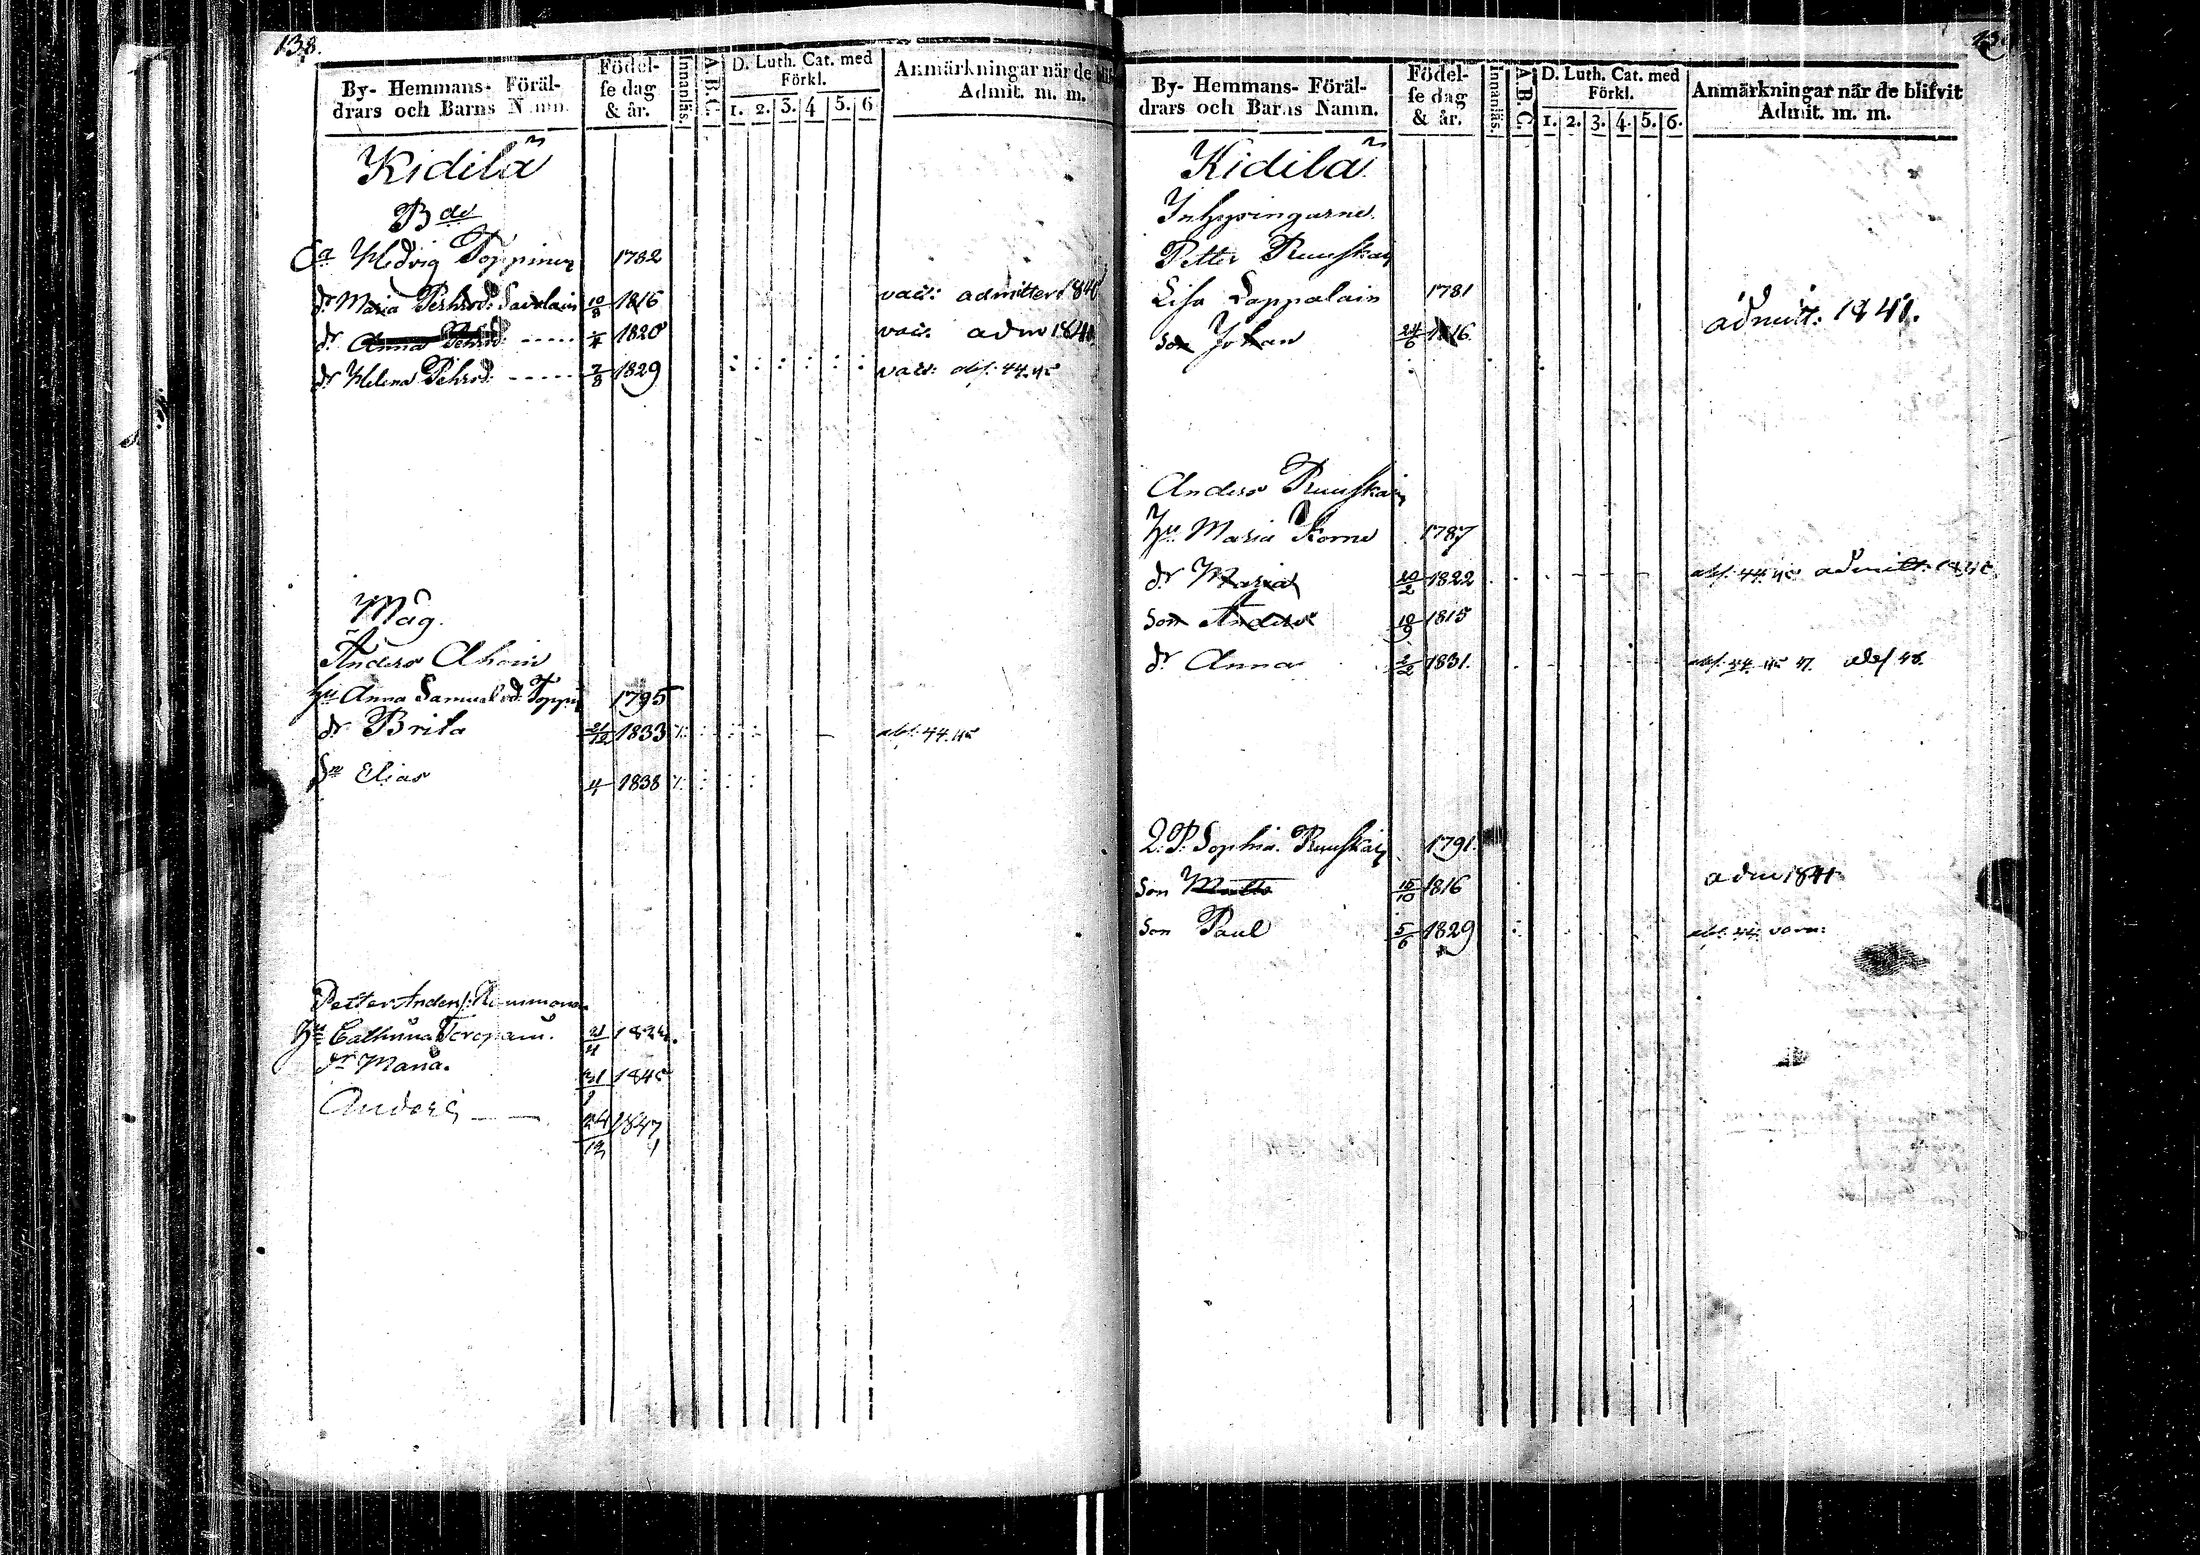 138.
By- Hemmans- Föräl-
drars och Barns Namn.
Födel-
se dag
& år.
Innanläs.
A.B.C.
D. Luth. Cat. med
Förkl.
1. 2. 3. 4 5. 6
Anmärkningar när de
Admit. m. m.
Kidilä
B de
Ea Hedvig Toppinen 1782
dr Maria Pehrsd: Savolain 10/8 1816 admitter 1840
dr Anna Pehrsd: 1820 adm 1841
dr Helena Pehrsd: 7/8 1829 abs: 44.45
Måg.
Anders Ahoin
hu Anna Samuelsd: Toppi 1795
dr Brita 21/12 1833 abs: 44.45
Sn Elias 4 1838
Petter Anders:
Hu Cathrina 21/4
dr Maria. 1845
Anders 24/12 1847
By- Hemmans- Föräl-
drars och Barns Namn.
Födel-
se dag
& år.
Innanläs.
A.B.C.
D. Luth. Cat. med
Förkl.
1. 2. 3. 4. 5. 6.
Anmärkningar när de blifvit
Admit. m. m.
Kidilä
Inhysingarne.
Petter Ruuskain
Lisa Lappalain 1781
son Johan 24/6 1816. admitt: 1841.
Anders Ruuskain
Hu Maria 1787
dr Maria 20/2 1822 abs: 44.45 admitt:
son Anders 18/9 1815
dr Anna 2/2 1831. abs: 44. 45 47. abs 48.
Q: P: Sophia. Ruuskain 1791.
son Matts 15/10 1816 adm 1841
son Paul 5/6 1829 abs: 44